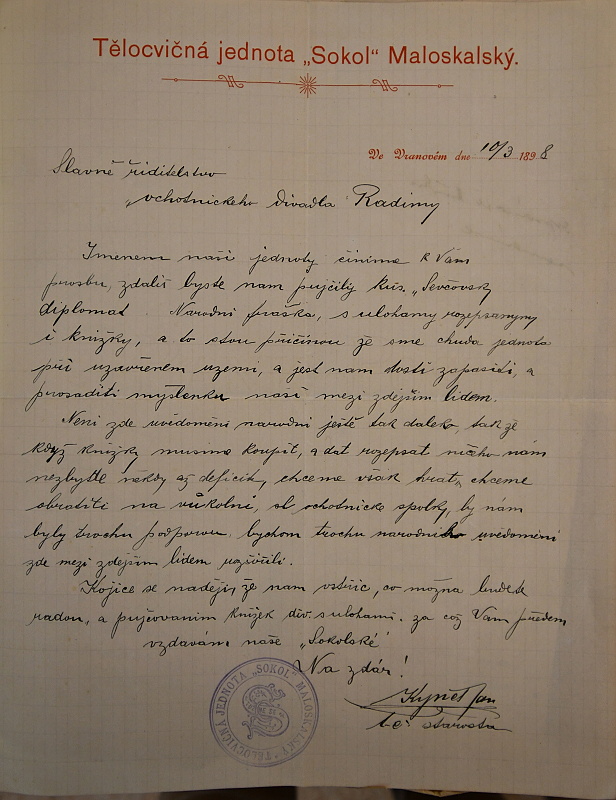 Tělocvičná jednota „Sokol" Maloskalský.
Ve Vranovém dne 10/3 1898
Slavné řiditelstvo
ochotnického divadla Radimy
Jmenem naší jednoty činíme k Vám
prosbu, zdališ byste nam pujčily kus „Ševčovský
diplomat. Narodní fraška, s ulohamy rozepsanymy
i knižky, a to stou příčinou že sme chuda jednota
při uzavřenem uzemi, a jest nam dosti zapasiti, a
prosaditi myšlenku naší mezi zdejším lidem.
Neni zde uvědomění narodní ještě tak daleko, tak že
když knižky musime koupit, a dat rozepsat ničeho nám
nezbytle někdy až deficik, chceme však hrat, chceme
obratiti na vůkolní, sl ochotnicke spolky, by nám
byly trochu podporou, bychom trochu narodniho uvědomění
zde mezi zdejším lidem rozšířili.
Kojice se nadějí, že nam vstříc, co možna budete
radou, a pujčovanim knížek div. s ulohami. za což Vam předem
vzdavám naše „Sokolské"
Na zdár!
Jan
t.č. starosta
TĚLOCVIČNÁ JEDNOTA „SOKOL" MALOSKALSKÝ